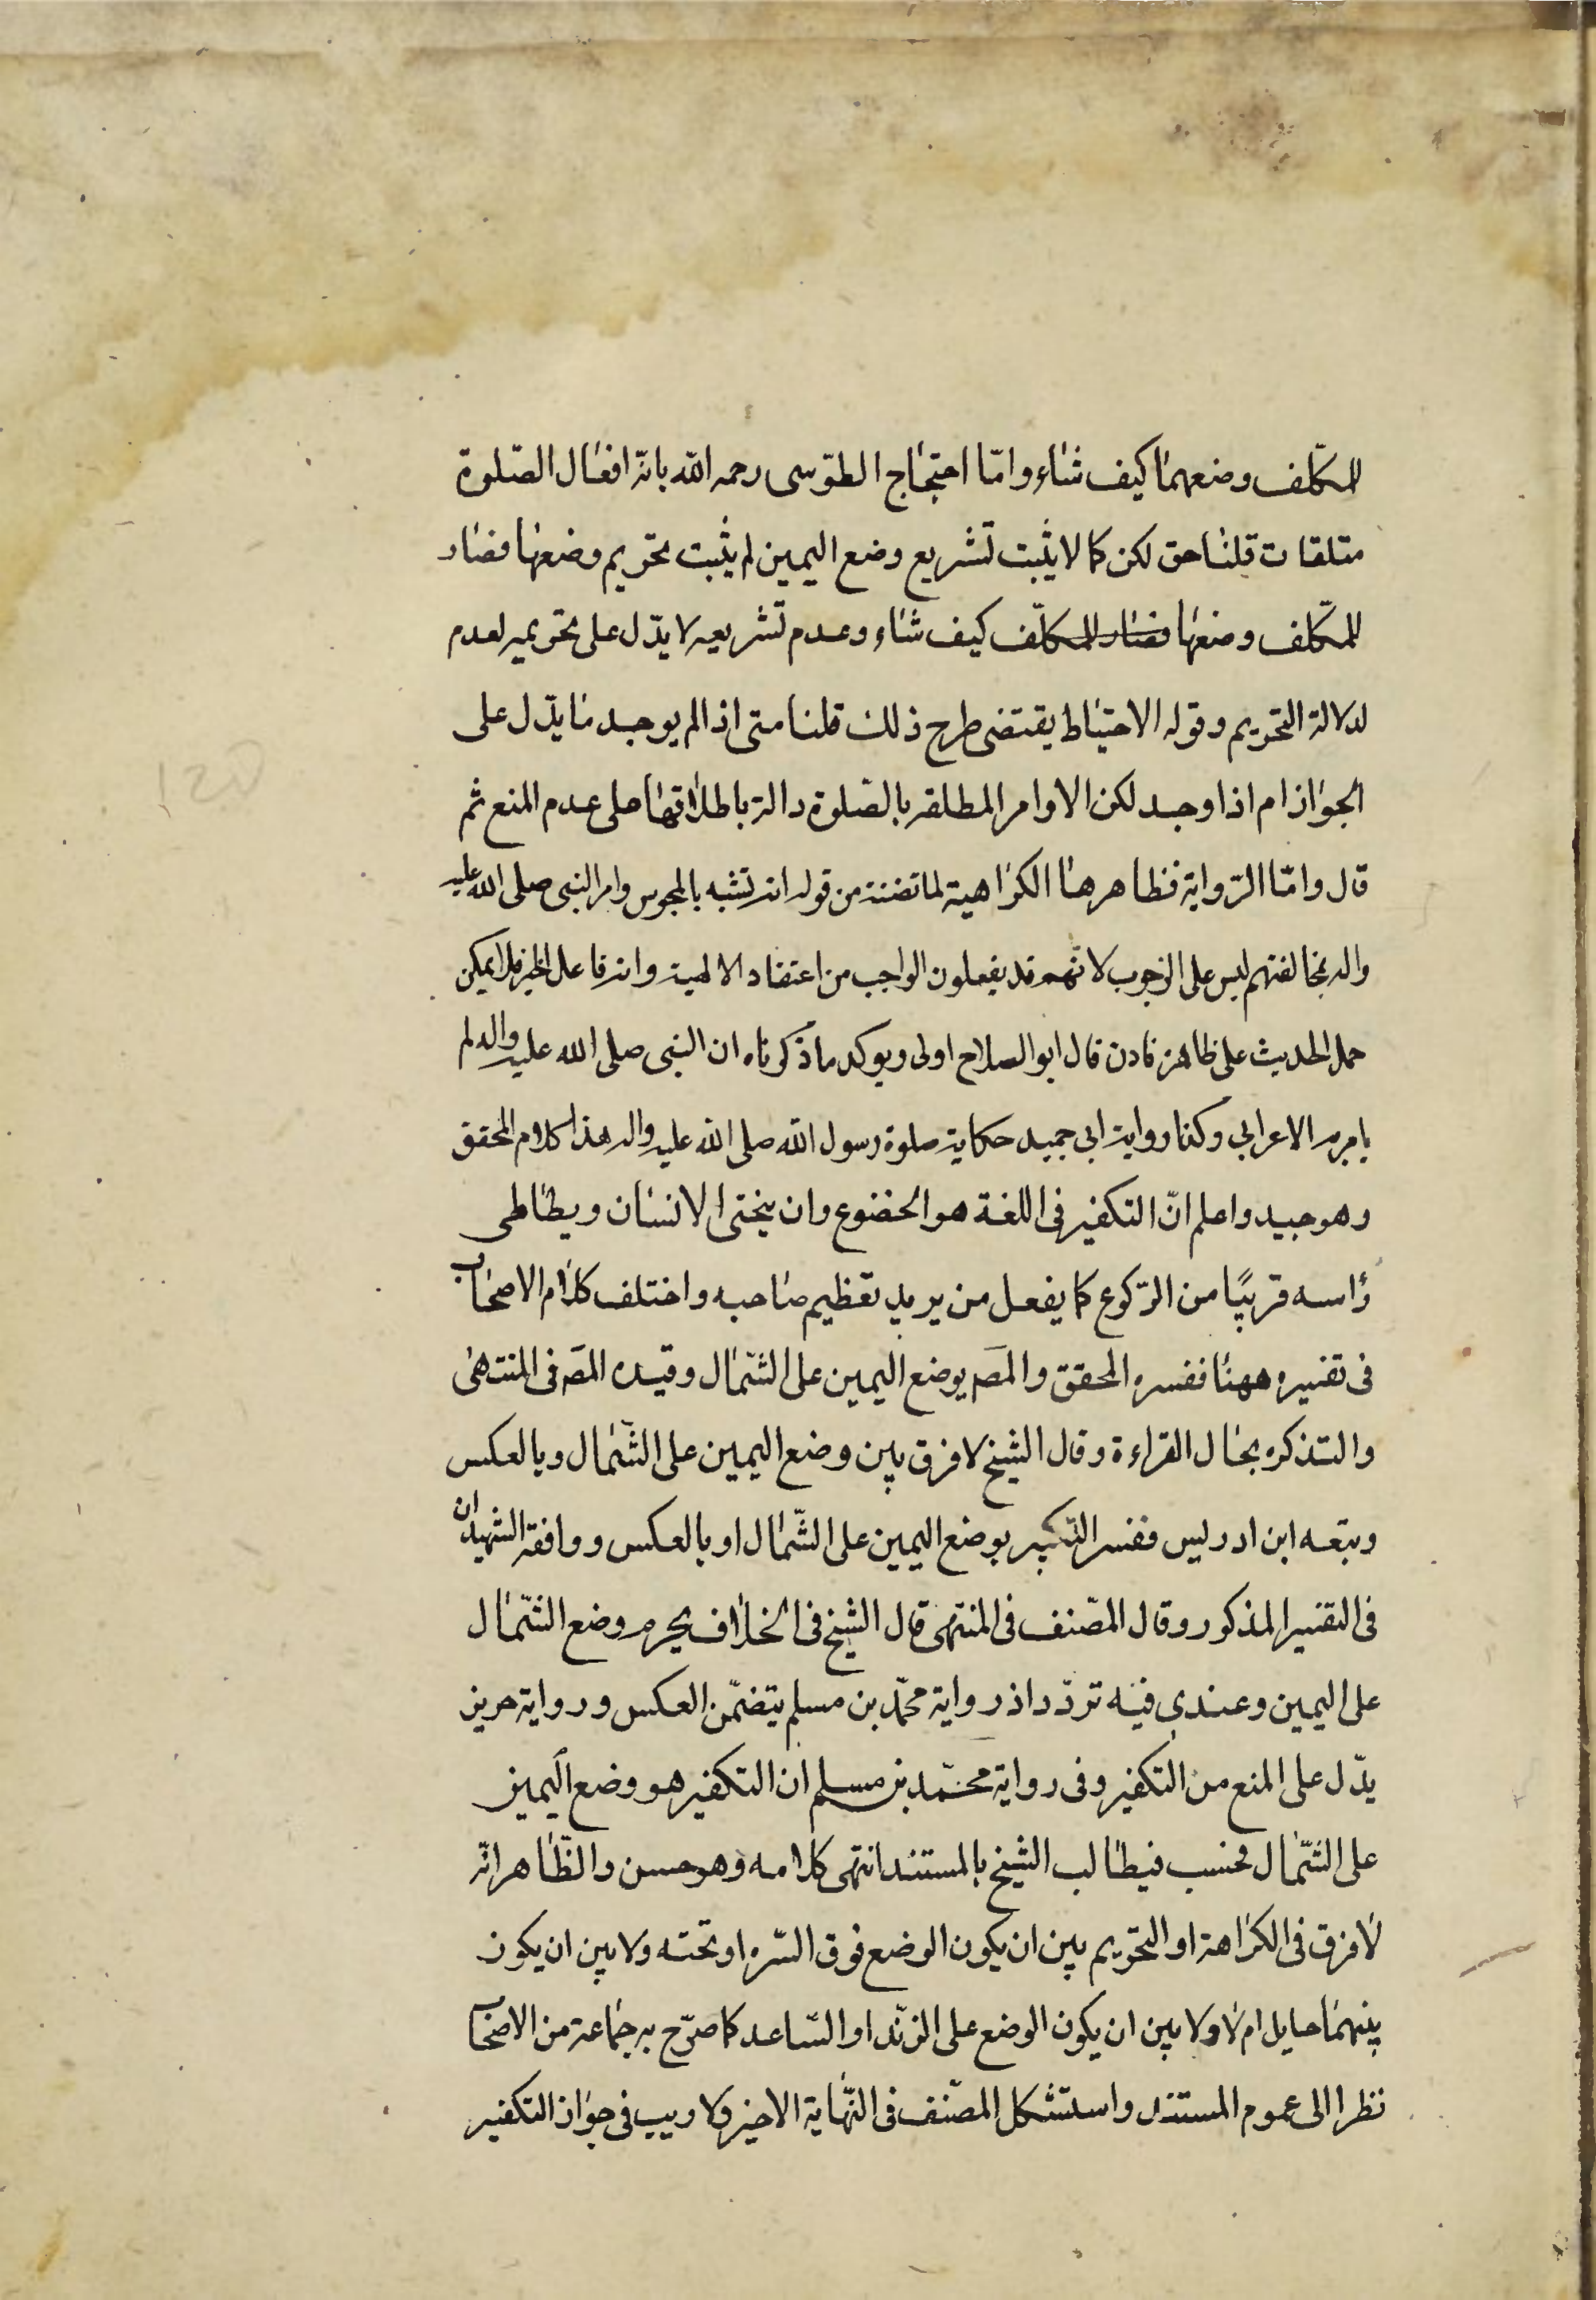 للمكلّف وضعهما كيف شاء وامّا احتجاج الطوسى رحمه الله بانّ افعال الصّلوة
متلقات قلنا حق لكن كما لا يثبت تشريع وضع اليمين لم يثبت تحريم وضعها فصار
للمكلّف وضعها فصار للمكلّف كيف شاء وعدم تشريعه لا يدّل على تحريمه لعدم
لدلالة التحريم وقوله الاحتياط يقتضى طرح ذلك قلنا متى اذا لم يوجد ما يدّل على
الجواز ام اذا وجد لكن الاوامر المطلقه بالصّلوة دالة باطلاقها على عدم المنع ثم
قال وامّا الرّواية فظاهرها الكراهية لما تضمنته من قوله انه تشبه بالمجوس وامر النبى صلى الله عليه
واله بمخالفتهم ليس على الوجوب لانّهم قد يفعلون الواجب من اعتقاد الالهية وانه فاعل الخير فلا يمكن
حمل الحديث على ظاهره فاذن قال ابو الصلاح اولى ويوكد ما ذكرناه ان النبى صلى الله عليه واله لم
يامر به الاعرابي وكذا رواية ابى حميد حكاية صلوة رسول الله صلى الله عليه واله هذا كلام المحقق
وهو جيد واعلم انّ التكفير فى اللغة هو الخضوع وان ينحنى الانسان ويطاطى
رأسه قريبًا من الرّكوع كما يفعل من يريد تعظيم صاحبه واختلف كلام الاصحاب
فى تفسيره ههنا ففسره المحقق والمصَ بوضع اليمين على الشّمال وقيده المصَ فى المنتهى
والتذكره بحال القراءة وقال الشيخ لا فرق بين وضع اليمين على الشّمال وبالعكس
وتبعه ابن ادريس ففسر التكبير بوضع اليمين على الشّمال او بالعكس ووافقه الشهيدان
فى التفسير المذكور وقال المصّنف فى المنتهى قال الشيخ فى الخلاف يحرم وضع الشّمال
على اليمين وعندى فيه تردّد اذ رواية محمّد بن مسلم يتضمّن العكس ورواية حريز
يدّل على المنع من التكفير وفى رواية محمّد بن مسلم ان التكفير هو وضع اليمين
على الشّمال فحسب فيطالب الشيخ بالمستند انتهى كلامه وهو حسن والظّاهر انّه
لا فرق فى الكراهة او التحريم بين ان يكون الوضع فوق السّره او تحته ولا بين ان يكون
بينهما حايل ام لا ولا بين ان يكون الوضع على الزند او السّاعد كما صرّح به جماعة من الاصحاب
نظرا الى عموم المستند واستشكل المصّنف فى النّهاية الاخير ولا ريب فى جواز التكفير